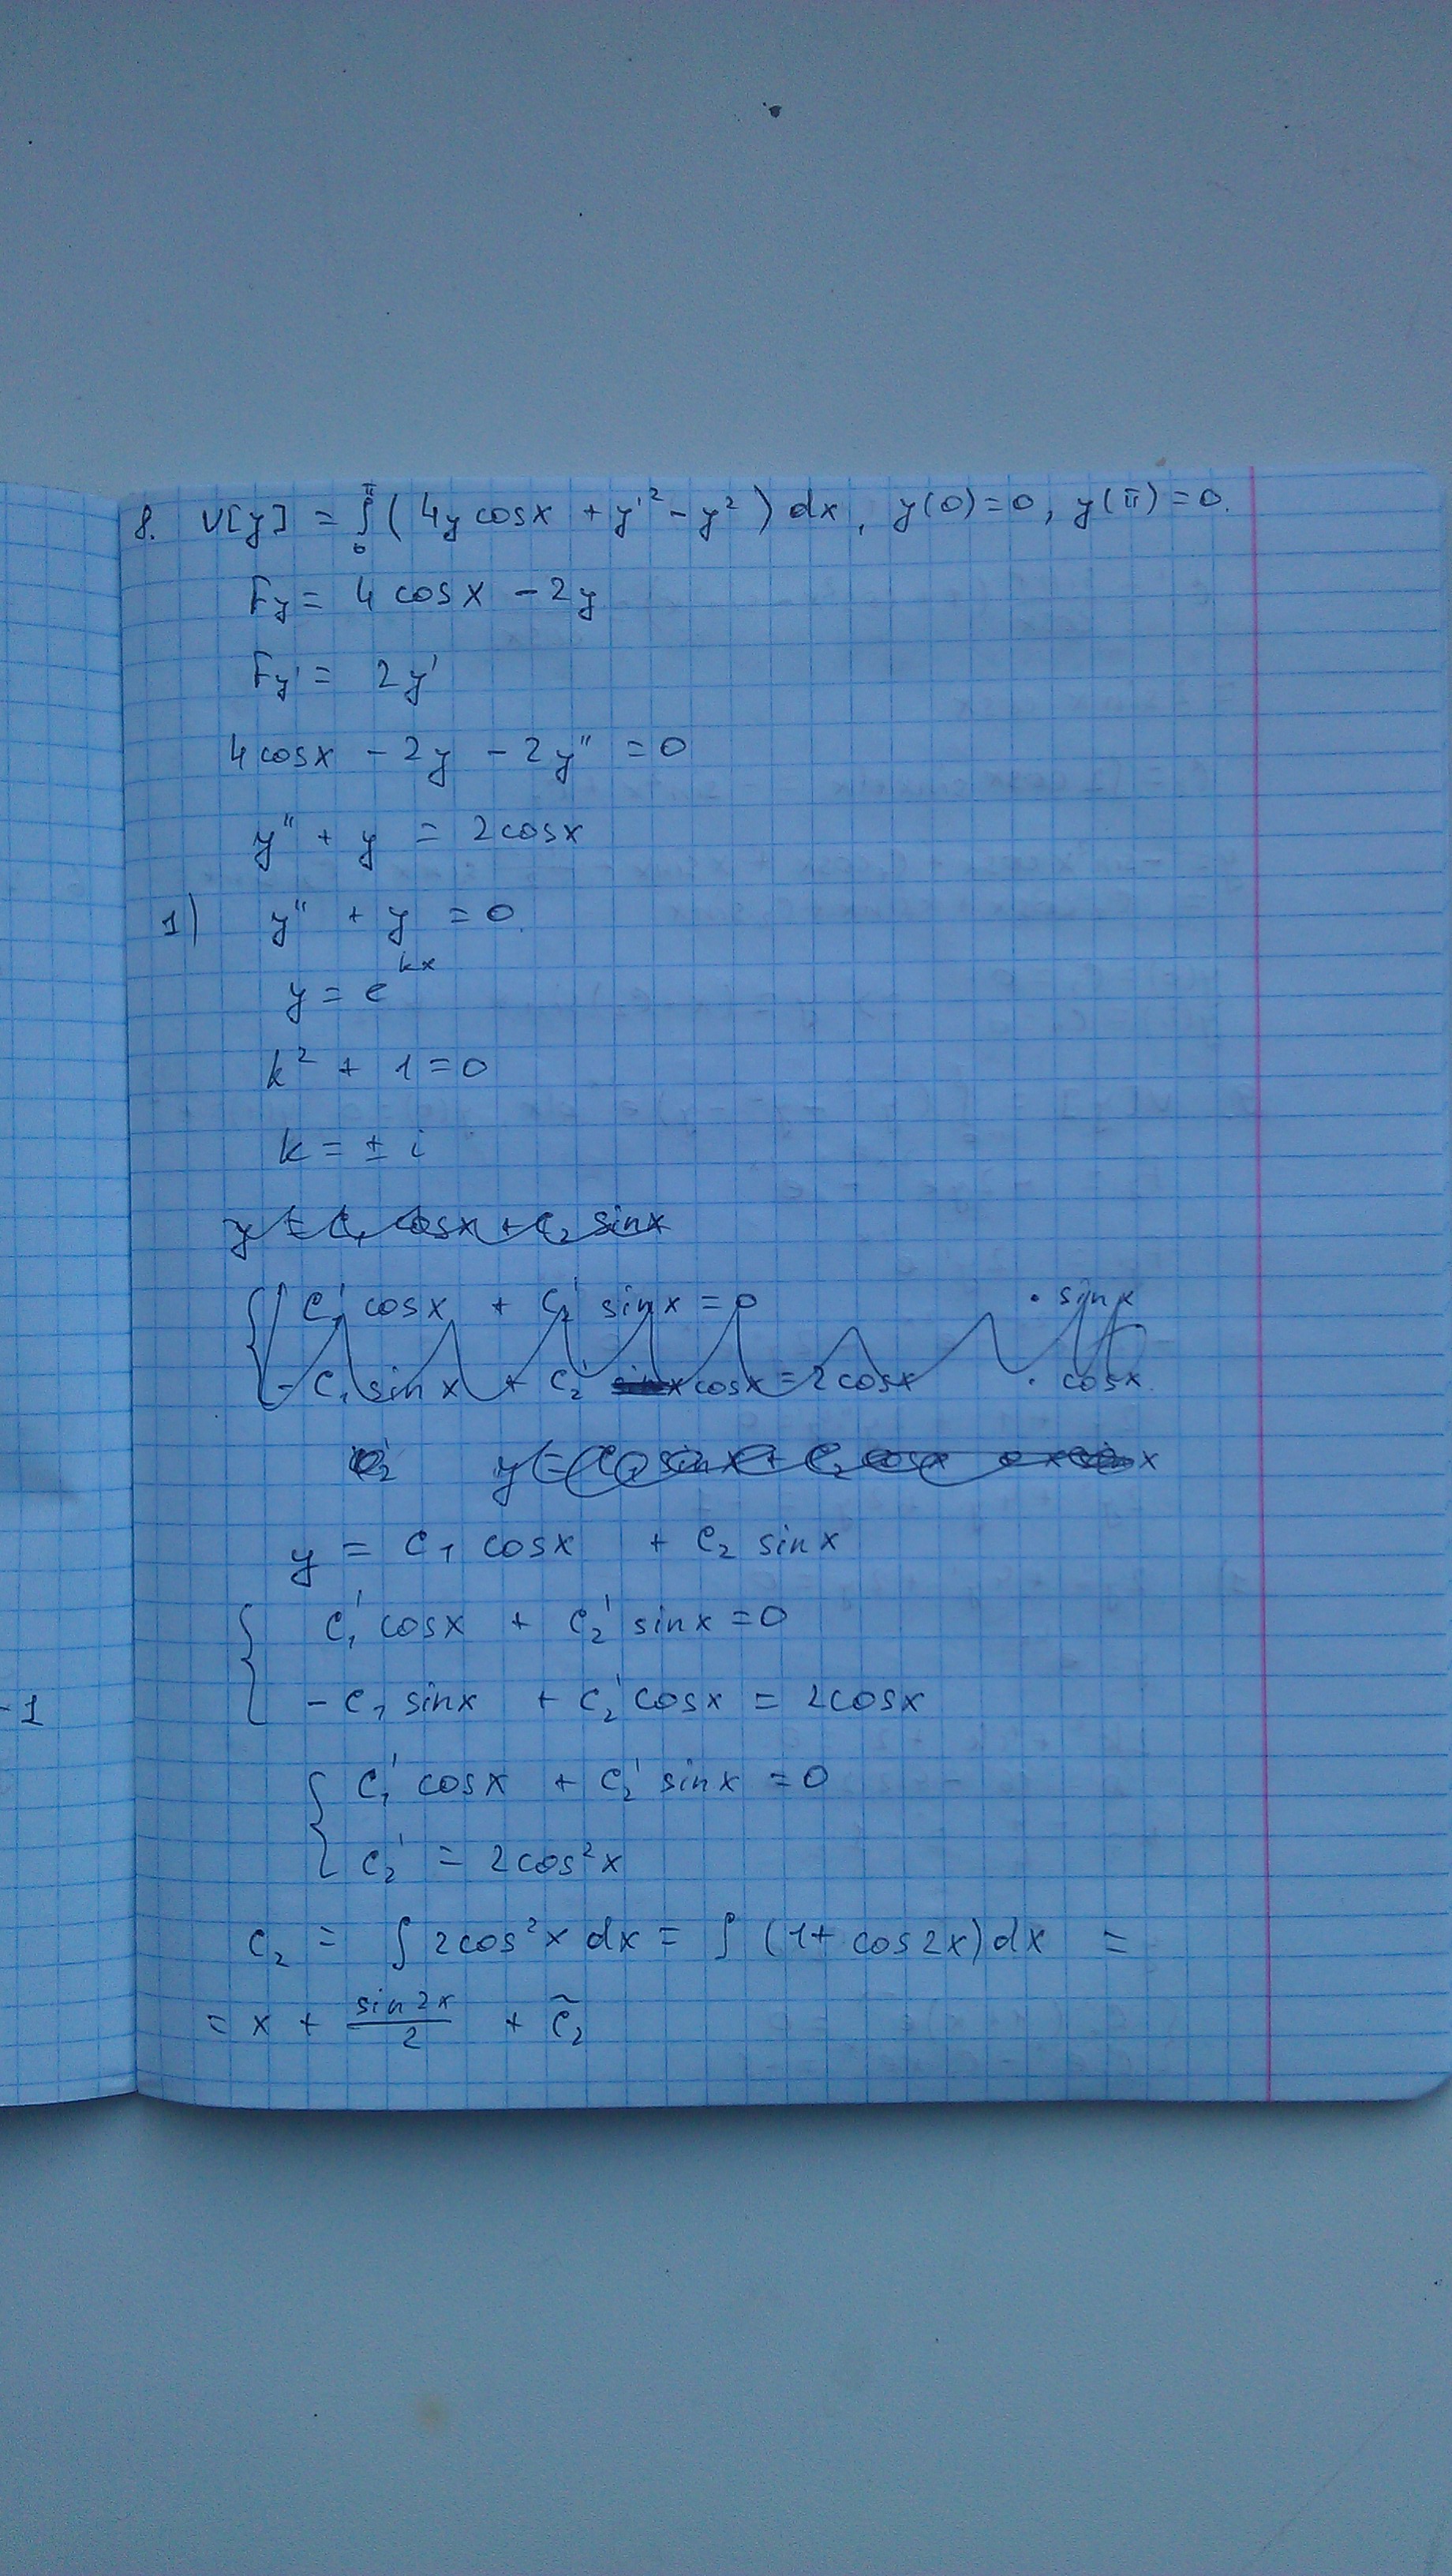 8. V[y] = ∫₀^π (4y cosx + y'² - y²) dx, y(0)=0, y(π)=0.
Fy = 4 cosx - 2y
Fy' = 2y'
4cosx - 2y - 2y'' = 0
y'' + y = 2cosx
1) y'' + y = 0.
y = e^kx
k² + 1 = 0
k = ± i
y = C₁ cosx + C₂ sinx
{ C₁' cosx + C₂' sinx = 0 · sinx
- C₁ sinx + C₂' cosx = 2cosx · cosx.
y = C₁ cosx + C₂ sinx
{ C₁' cosx + C₂' sinx = 0
- C₁ sinx + C₂' cosx = 2cosx
-1
{ C₁' cosx + C₂' sinx = 0
C₂' = 2cos²x
C₂ = ∫ 2cos²x dx = ∫ (1+ cos2x)dx =
= x + sin2x/2 + C̃₂